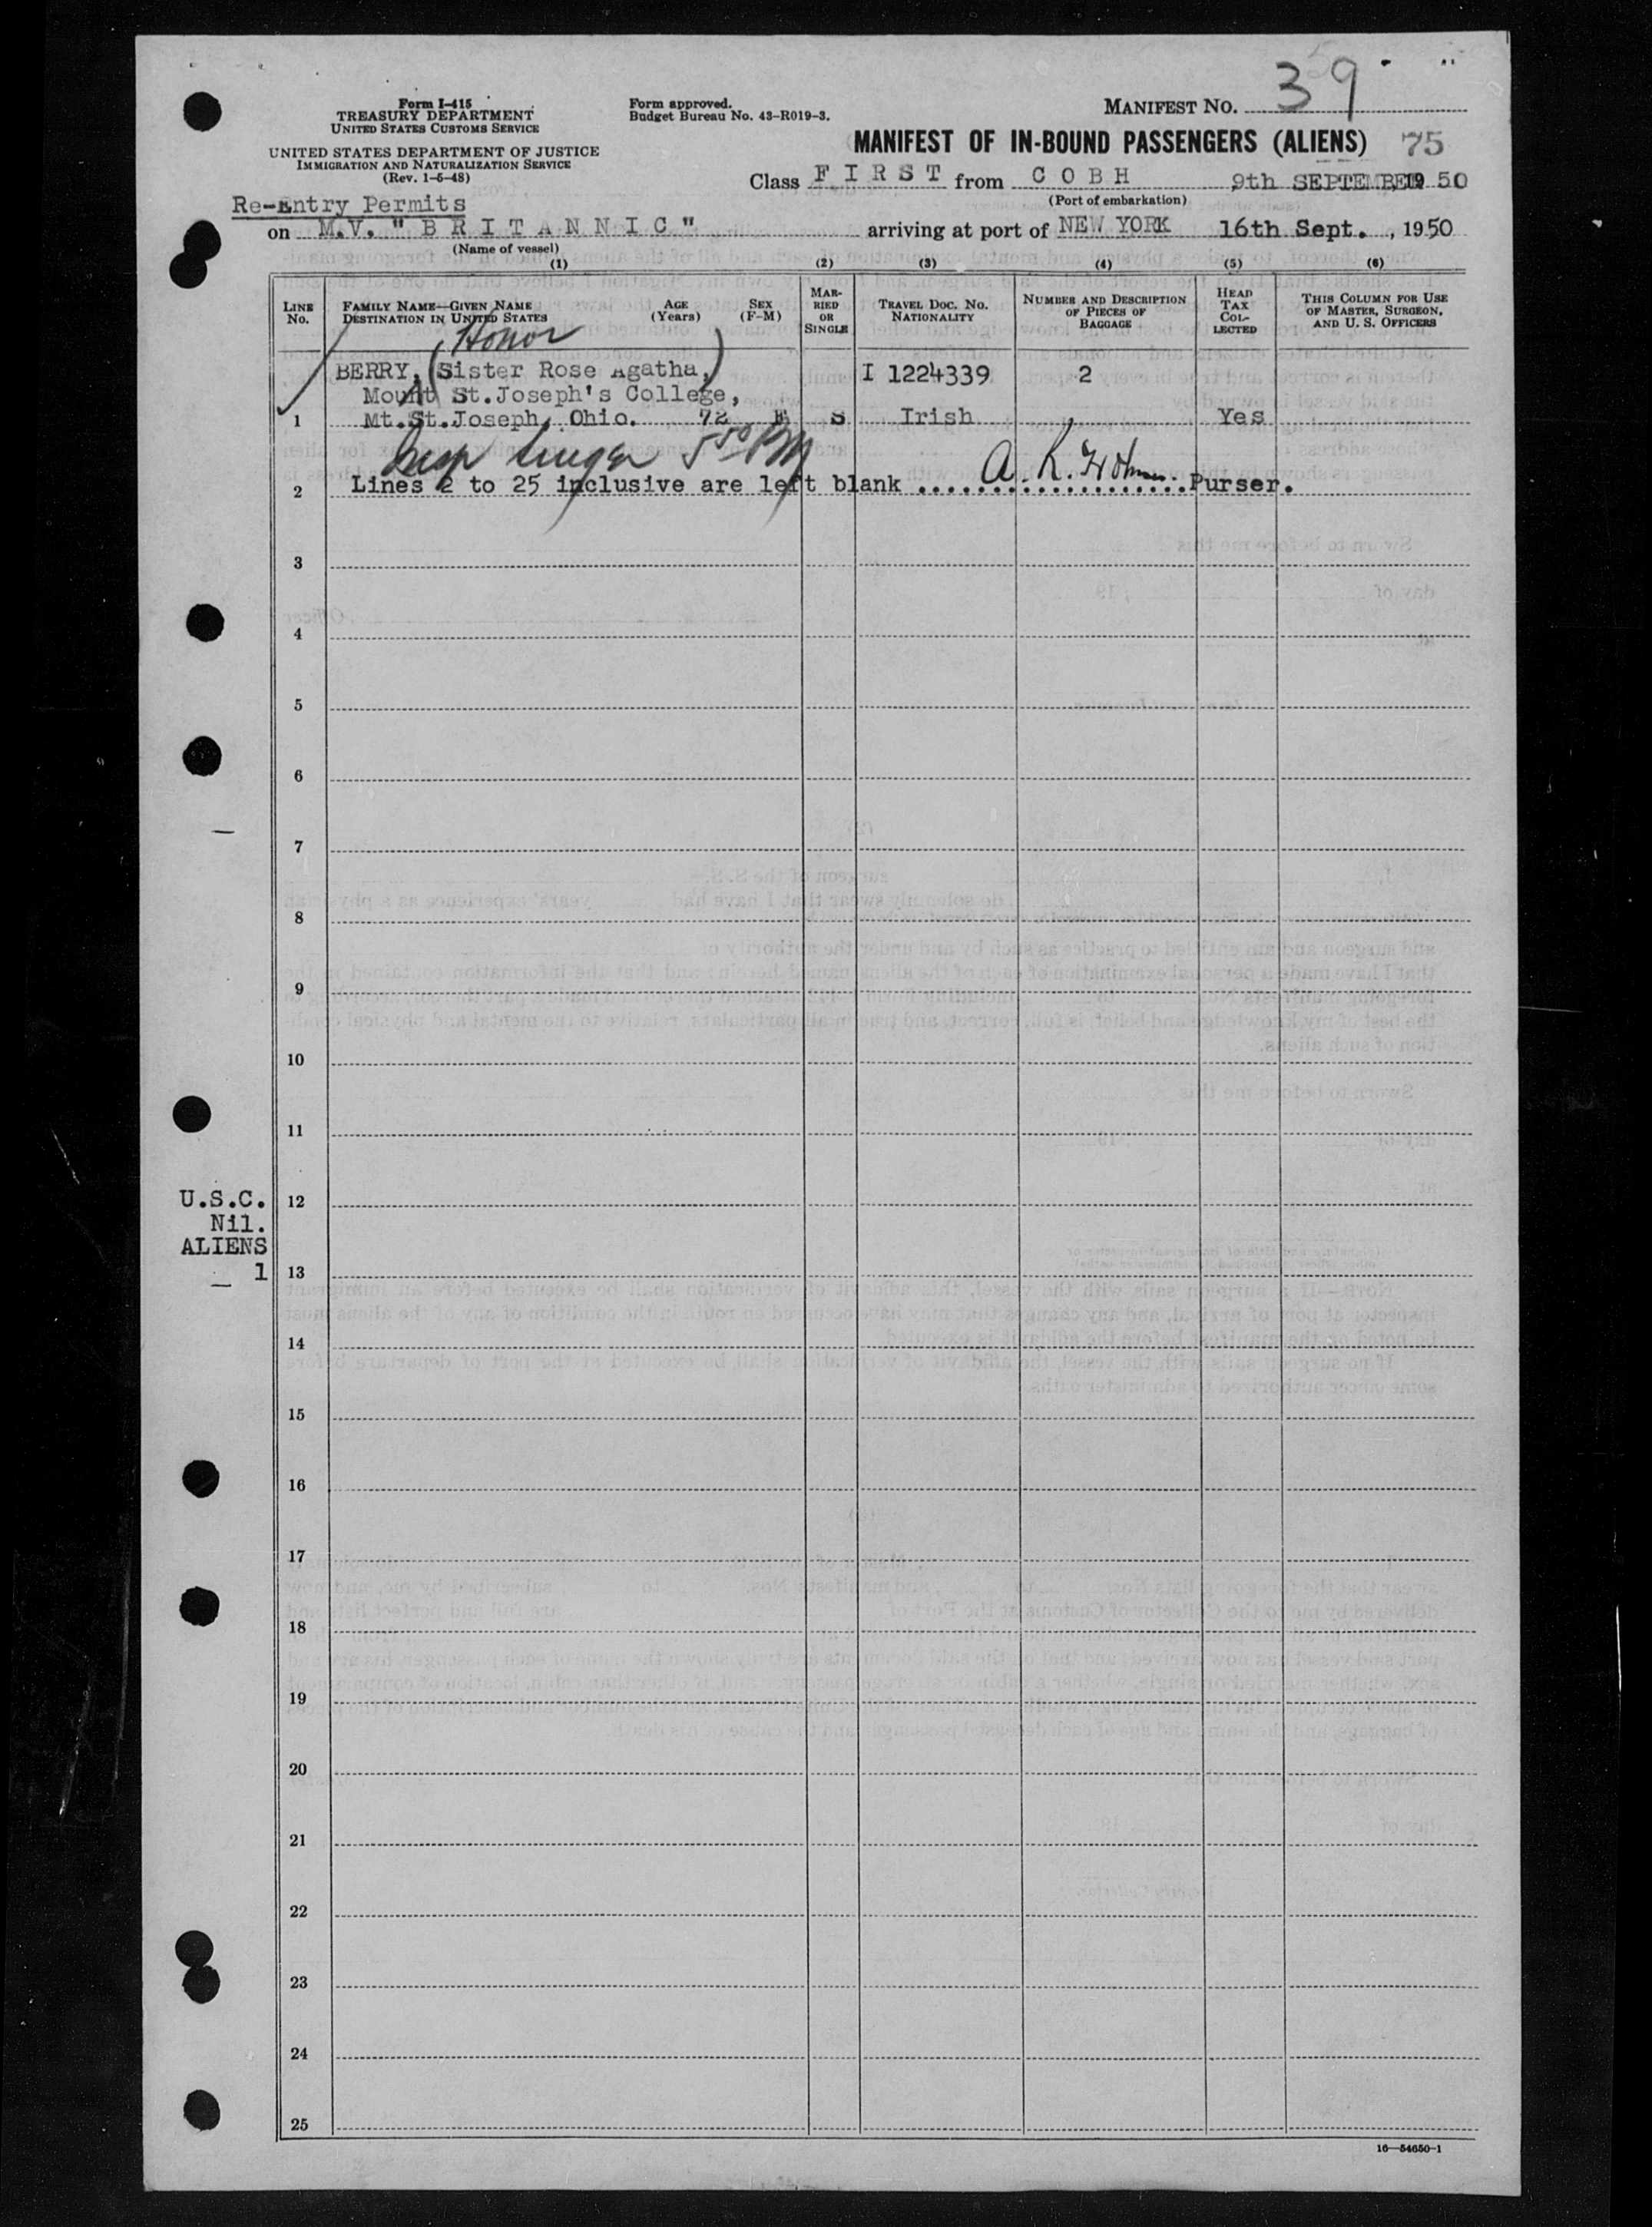 MANIFEST NO. 39
Form I-415
TREASURY DEPARTMENT
UNITED STATES CUSTOMS SERVICE
Form approved.
Budget Bureau No. 43-R019-3.
UNITED STATES DEPARTMENT OF JUSTICE
IMMIGRATION AND NATURALIZATION SERVICE
(Rev. 1-6-48)
MANIFEST OF IN-BOUND PASSENGERS (ALIENS) 75
Class FIRST from COBH 9th SEPTEMBER 1950
(Port of embarkation)
Re-Entry Permits
on M.V. "BRITANNIC" arriving at port of NEW YORK 16th Sept. , 1950
(Name of vessel)
(1) (2) (3) (4) (5) (6)
LINE No. FAMILY NAME—GIVEN NAME DESTINATION IN UNITED STATES AGE (Years) SEX (F-M) MARRIED OR SINGLE TRAVEL DOC. No. NATIONALITY NUMBER AND DESCRIPTION OF PIECES OF BAGGAGE HEAD TAX COLLECTED THIS COLUMN FOR USE OF MASTER, SURGEON, AND U. S. OFFICERS
Honor
BERRY, (Sister Rose Agatha,) I 1224339 2
Mount St.Joseph's College,
1 Mt.St.Joseph, Ohio. 72 F S Irish Yes
5 50 PM
2 Lines 2 to 25 inclusive are left blank ................... Purser.
3
4
5
6
7
8
9
10
11
U.S.C. 12
Nil.
ALIENS
1 13
14
15
16
17
18
19
20
21
22
23
24
25
16—54650-1